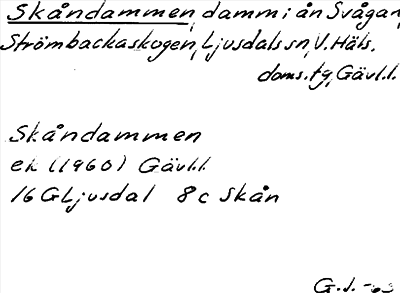 Skåndammen, damm i ån Svågan,
Strömbackaskogen, Ljusdals sn, V. Häls.
doms.tg, Gävl.l.
Skåndammen
ek (1960) Gävl.l.
16 G Ljusdal 8 c Skån
G.J. -63